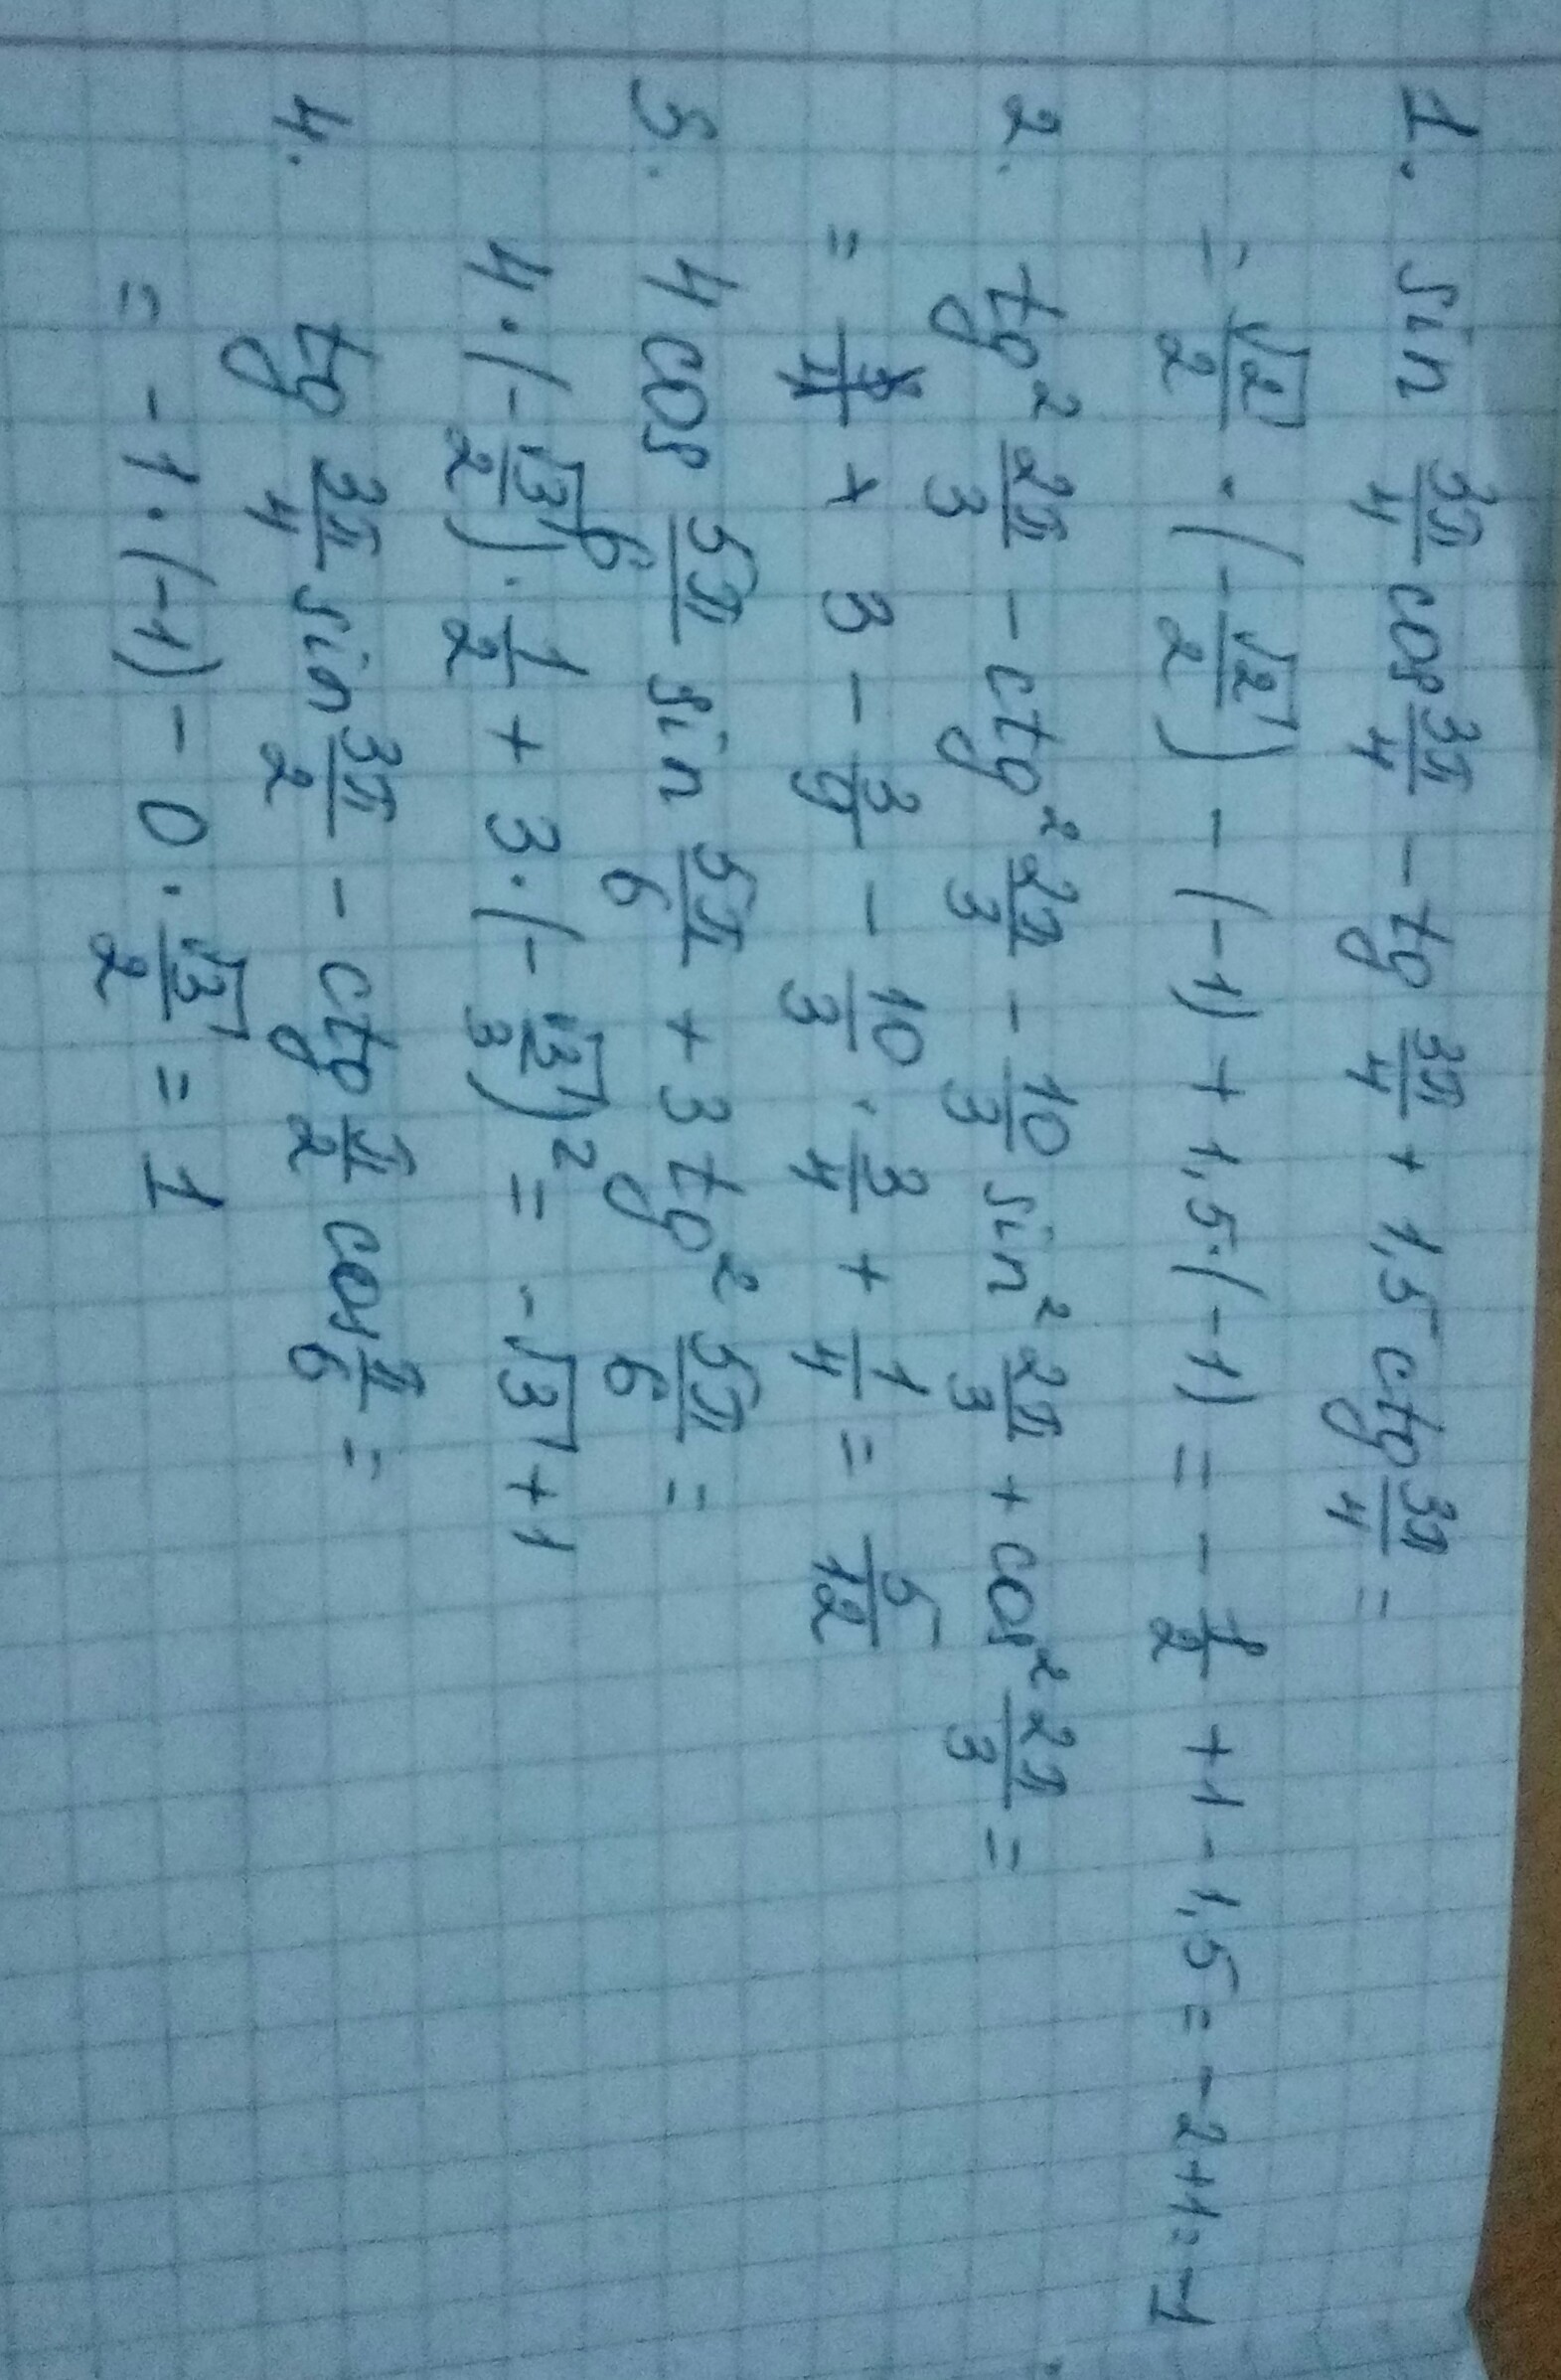 1. sin 3π/4 cos 3π/4 - tg 3π/4 + 1,5 ctg 3π/4 =
= √2/2 · (-√2/2) - (-1) + 1,5·(-1) = -1/2 + 1 - 1,5 = -2+1=-1
2. tg² 2π/3 - ctg² 2π/3 - 10/3 sin² 2π/3 + cos² 2π/3 =
= 3 - 3/9 - 10/3 · 3/4 + 1/4 = 5/12
3. 4 cos 5π/6 sin 5π/6 + 3 tg² 5π/6 =
4·(-√3/2)·1/2 + 3·(-√3/3)² = -√3 + 1
4. tg 3π/4 sin 3π/2 - ctg π/2 cos π/6 =
= -1·(-1) - 0·√3/2 = 1